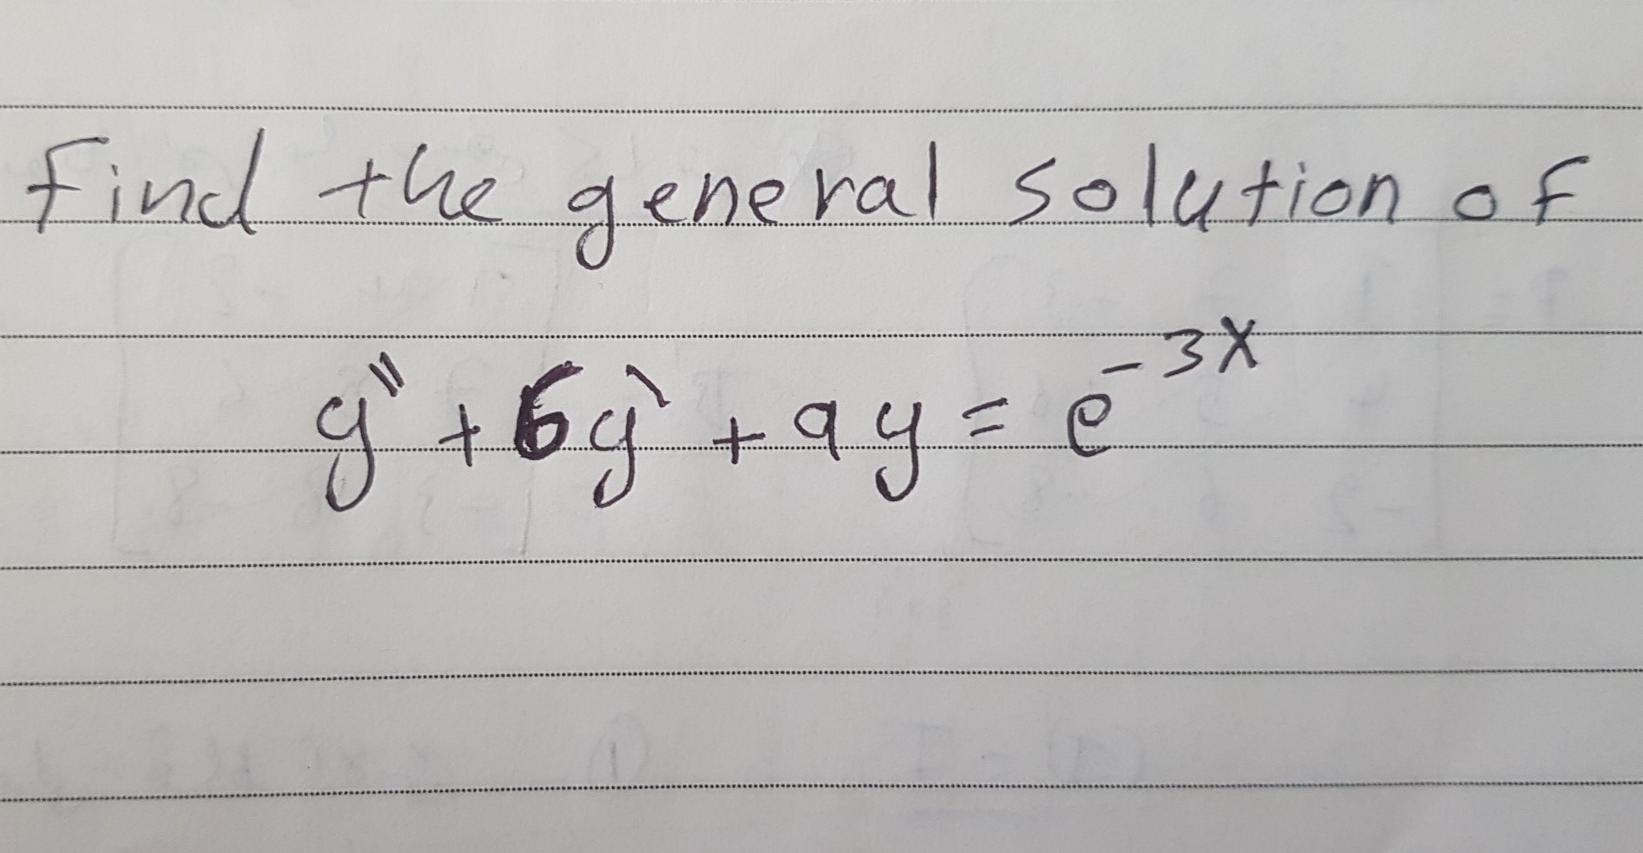 Find the general solution of
y'' + 6y' + 9y = e^{-3x}